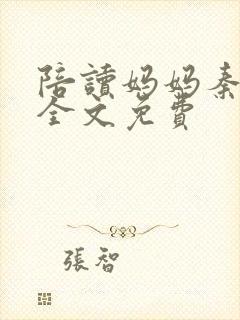 陪讀媽媽秦
全文免費
張智